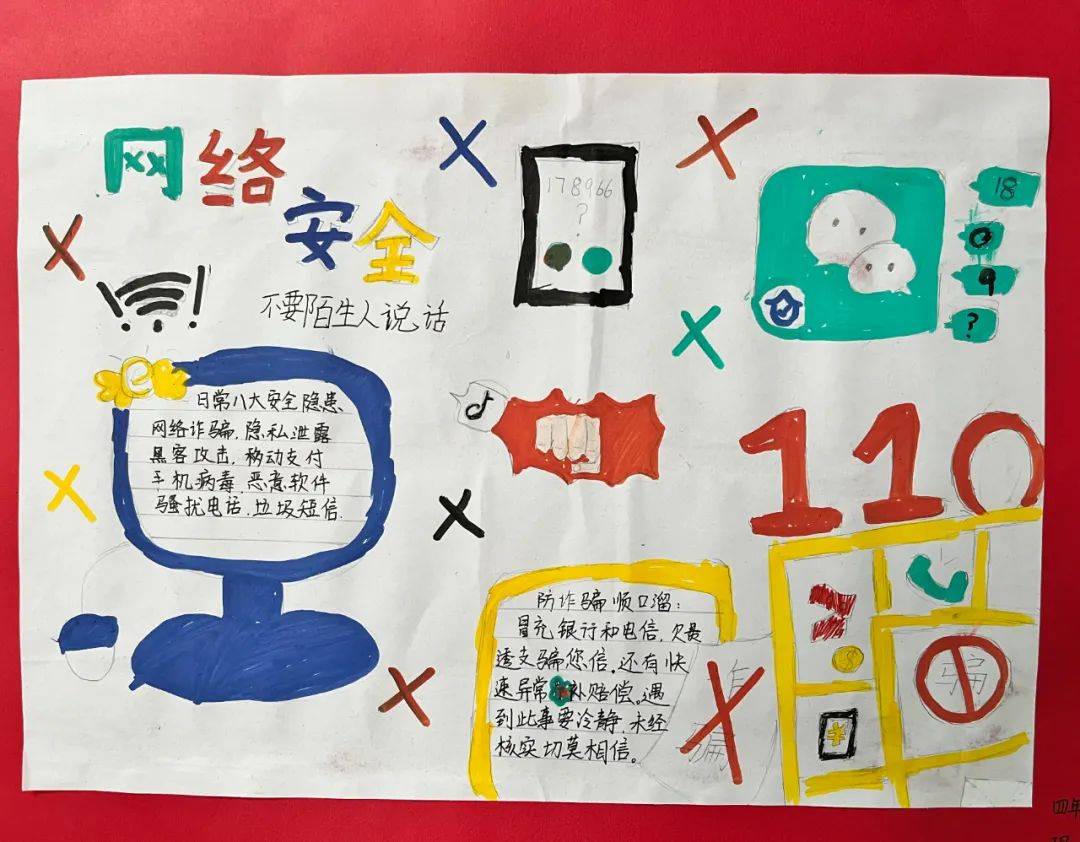 网络
安全
不要陌生人说话
178966
?
18
9
?
e
日常八大安全隐患
网络诈骗,隐私泄露
黑客攻击,移动支付
手机病毒,恶意软件
骚扰电话,垃圾短信
110
防诈骗顺口溜:
冒充银行和电信,欠费
透支骗您信,还有快
速异常 补赔偿。遇
到此事要冷静,未经
核实切莫相信。
诈
骗
骗
¥
四年